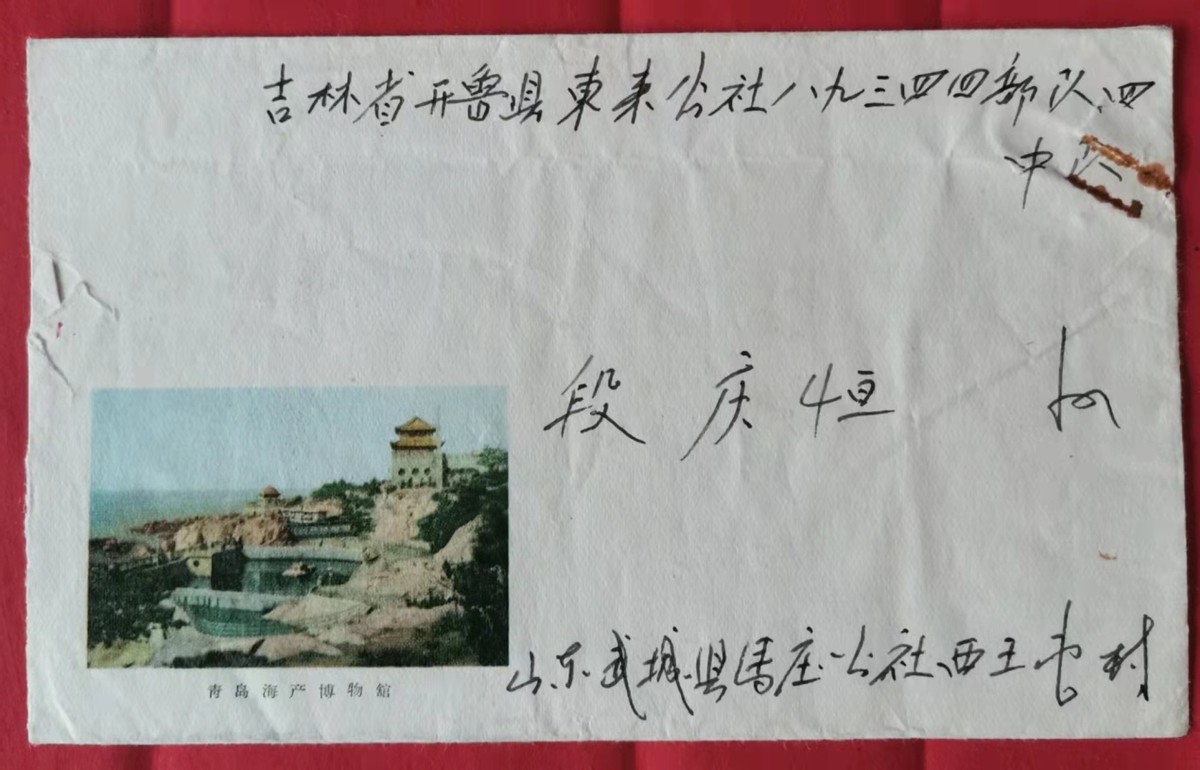 吉林省开鲁县東来公社八九三四四部队四
中队
段庆恒 收
山东武城县馬庄公社西王屯村
青島海产博物館